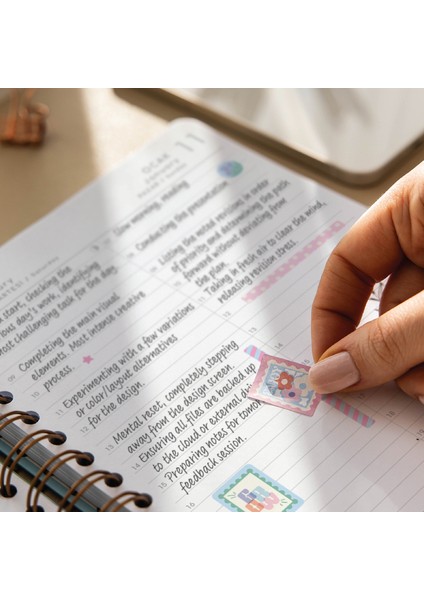 OCAK
11
Slow morning, reading
Conducting the presentation
Listing the noted revisions in order
of priority and determining the path
forward without deviating from
the plan.
Taking in fresh air to clear the mind,
releasing revision stress.
start, checking the
ious day's work, identifying
most challenging task for the day.
09
Completing the main visual
10
elements. Most intense creative
process.
11
Experimenting with a few variations
12
or color/layout alternatives
for the design.
13
Mental reset, completely stepping
14
away from the design screen.
15
Ensuring all files are backed up
to the cloud or external drive.
16
Preparing notes for tomor
feedback session.